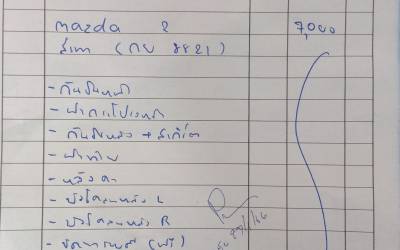 mazda 2 7,000
สีเทา (กบ 8821)
- กันชนหน้า
- ฝากระโปรงหน้า
- กันชนหลัง → สเกิร์ต
- ฝาท้าย
- หลังคา
- บังโคลนหลัง L
- บังโคลนหลัง R